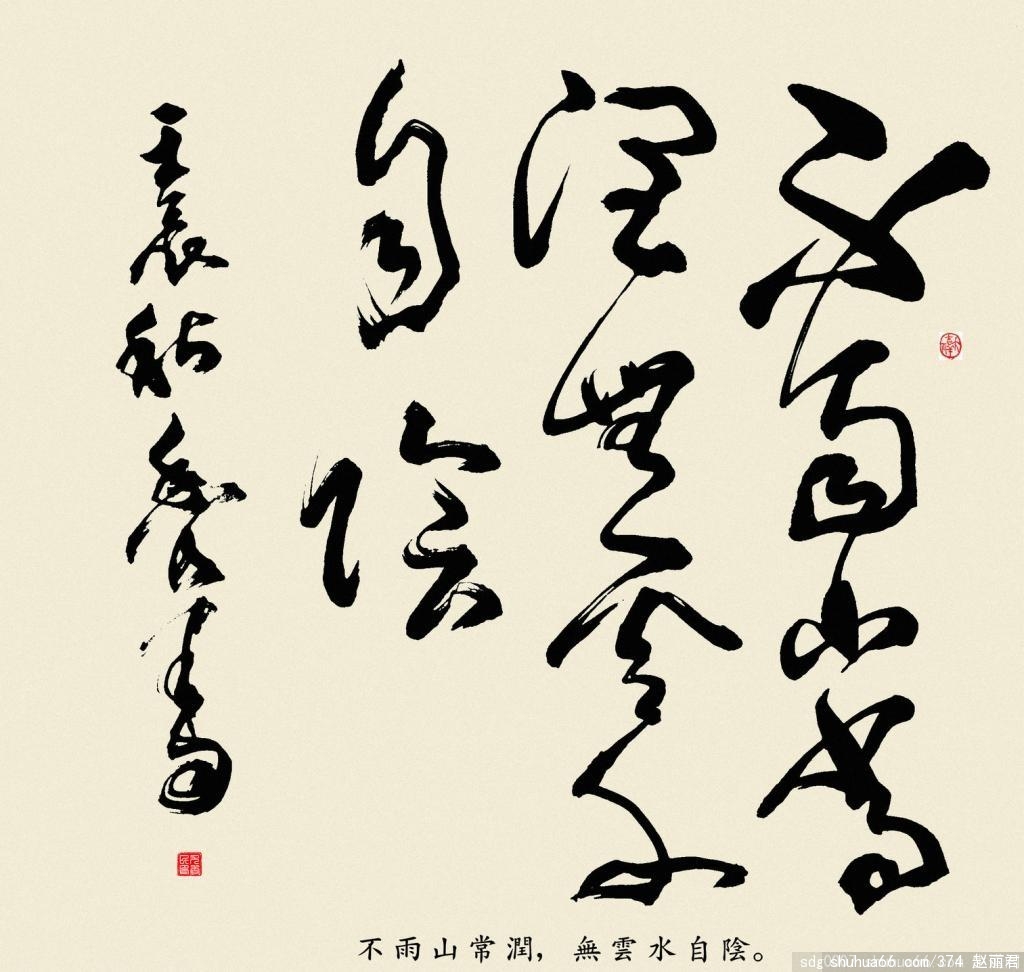 不雨山常
潤無雲水
自陰
壬辰秋
書
不雨山常潤，無雲水自陰。
sdg.shuhua66.com/374 赵丽君